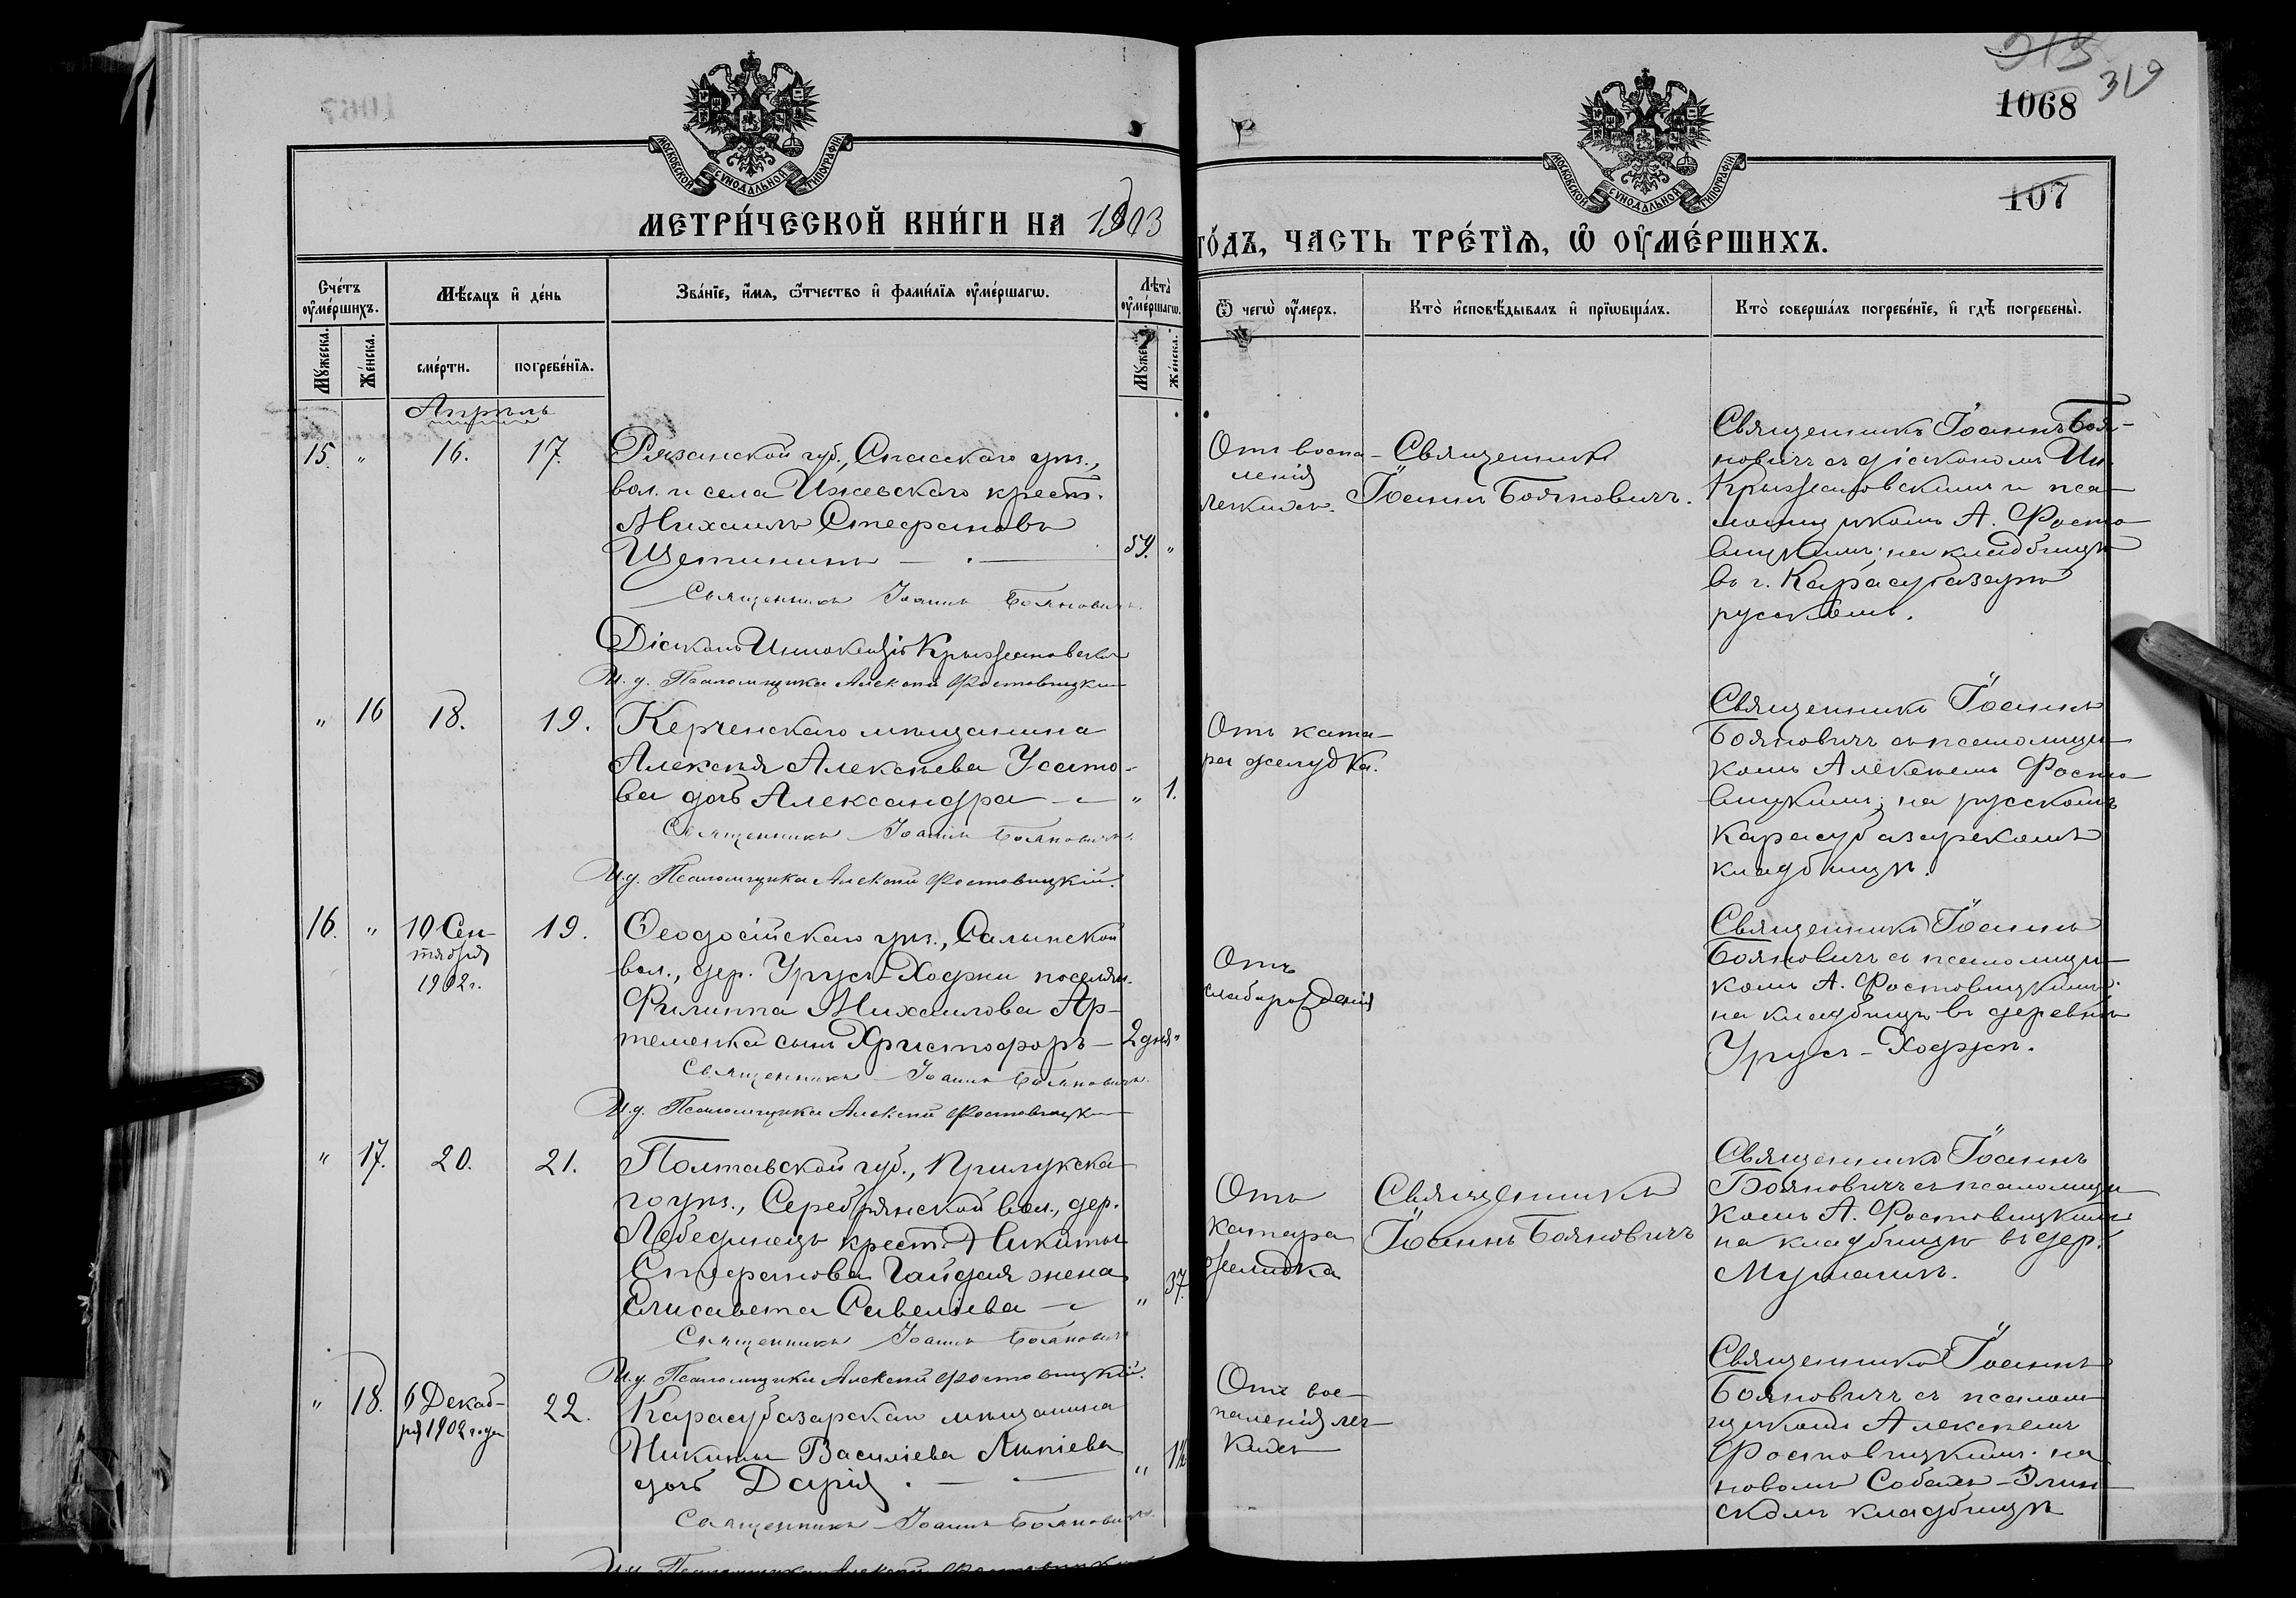 319
1068
107
МОСКОВСКОЙ СѴНОДАЛЬНОЙ ТИПОГРАФІИ
МОСКОВСКОЙ СѴНОДАЛЬНОЙ ТИПОГРАФІИ
МЕТРИ́ЧЕСКОЙ КНИ́ГИ НА 1903
ГО́ДЪ, ЧАСТЬ ТРЕ́ТЇѦ, Ѽ ОУ҆МЕ́РШИХЪ.
Сче́тъ оу҆ме́ршихъ.
Мѣ́сяцъ и҆ де́нь
Зва́нїе, и҆́мѧ, ѻ҆́тчество и҆ фами́лїѧ оу҆ме́ршагѡ.
Лѣ́та оу҆ме́ршагѡ.
Ѿ чегѡ̀ оу҆́меръ.
Кто̀ и҆сповѣ́дывалъ и҆ прїѡбща́лъ.
Кто̀ соверша́лъ погребе́нїе, и҆ гдѣ̀ погребены̀.
Мꙋ́жеска.
Же́нска.
сме́рти.
погребе́нїѧ.
Мꙋ́жеска.
Же́нска.
Апрѣль
15. " 16. 17.
Рязанской губ., Спасскаго уѣз.,
вол. и села Ижевскаго крест.
Михаилъ Стефановъ
Щетининъ
59. "
Священникъ Іоаннъ Бояновичъ.
Діаконъ Иннокентій Крыжановскій
И. д. Псаломщика Алексій Фостовицкій
Отъ воспа-
ленія
легкихъ.
Священникъ
Іоаннъ Бояновичъ.
Священникъ Іоаннъ Боя-
новичъ съ діакономъ Ин.
Крыжановскимъ и пса-
ломщикомъ А. Фосто-
вицкимъ; на кладбищѣ
въ г. Карасубазарѣ
русскомъ.
" 16 18. 19.
Керченскаго мѣщанина
Алексѣя Алексѣева Усато-
ва дочь Александра
" 1.
Священникъ Іоаннъ Бояновичъ.
И. д. Псаломщика Алексій Фостовицкій.
Отъ ката-
ра желудка.
Священникъ Іоаннъ
Бояновичъ съ псаломщи-
комъ Алексѣемъ Фосто-
вицкимъ; на русскомъ
Карасубазарскомъ
кладбищѣ.
16. " 10 Сен-
тября
1902 г.
19.
Ѳеодосійскаго уѣз., Салынской
вол., дер. Урусъ-Ходжи поселян.
Филиппа Михаилова Ар-
теменка сынъ Христофоръ
2 дня "
Священникъ Іоаннъ Бояновичъ.
И. д. Псаломщика Алексій Фостовицкій
Отъ
слаборожденія
Священникъ Іоаннъ
Бояновичъ съ псаломщи-
комъ А. Фостовицкимъ.
на кладбищѣ въ деревнѣ
Урусъ-Ходжѣ.
" 17. 20. 21.
Полтавской губ., Прилукска-
го уѣз., Серебрянской вол., дер.
Лебединецъ крест. Никиты
Стефанова Гайдая жена
Елисавета Савеліева
" 37.
Священникъ Іоаннъ Бояновичъ
И. д. Псаломщика Алексій Фостовицкій.
Отъ
катара
желудка
Священникъ
Іоаннъ Бояновичъ
Священникъ Іоаннъ
Бояновичъ съ псаломщи-
комъ А. Фостовицкимъ
на кладбищѣ въ дер.
" 18. 6 Декаб-
ря 1902 года
22.
Карасубазарскаго мѣщанина
Никиты Василіева
дочь Дарія.
"
Священникъ Іоаннъ Бояновичъ.
И. д. Псаломщика Алексій Фостовицкій
Отъ вос-
паленія лег-
кихъ
Священникъ Іоаннъ
Бояновичъ съ псалом-
щикомъ Алексѣемъ
Фостовицкимъ. на
новомъ
скомъ кладбищѣ